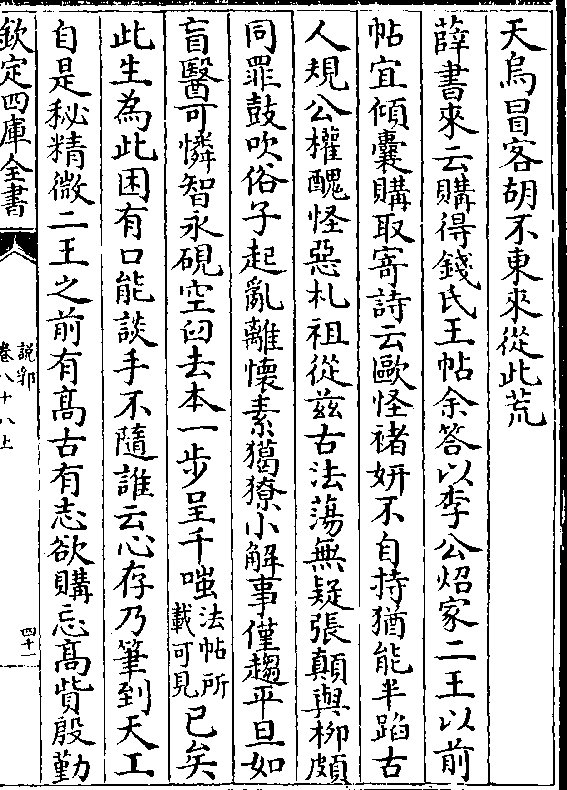 天烏冒客胡不東來從此荒
薛書來云購得錢氏王帖余答以李公炤家二王以前
帖宜傾囊購取寄詩云歐怪褚妍不自持猶能半蹈古
人規公權醜怪惡札祖從兹古法蕩無疑張顛與柳頗
同罪鼓吹俗子起亂離懷素獦獠小解事僅趨平旦如
盲醫可憐智永硯空臼去本一步呈千嗤法帖所載可見已矣
此生為此困有口能談手不隨誰云心存乃筆到天工
自是秘精微二王之前有髙古有志欲購忘髙貲殷勤
欽定四庫全書
說郛
卷八十八上
四十